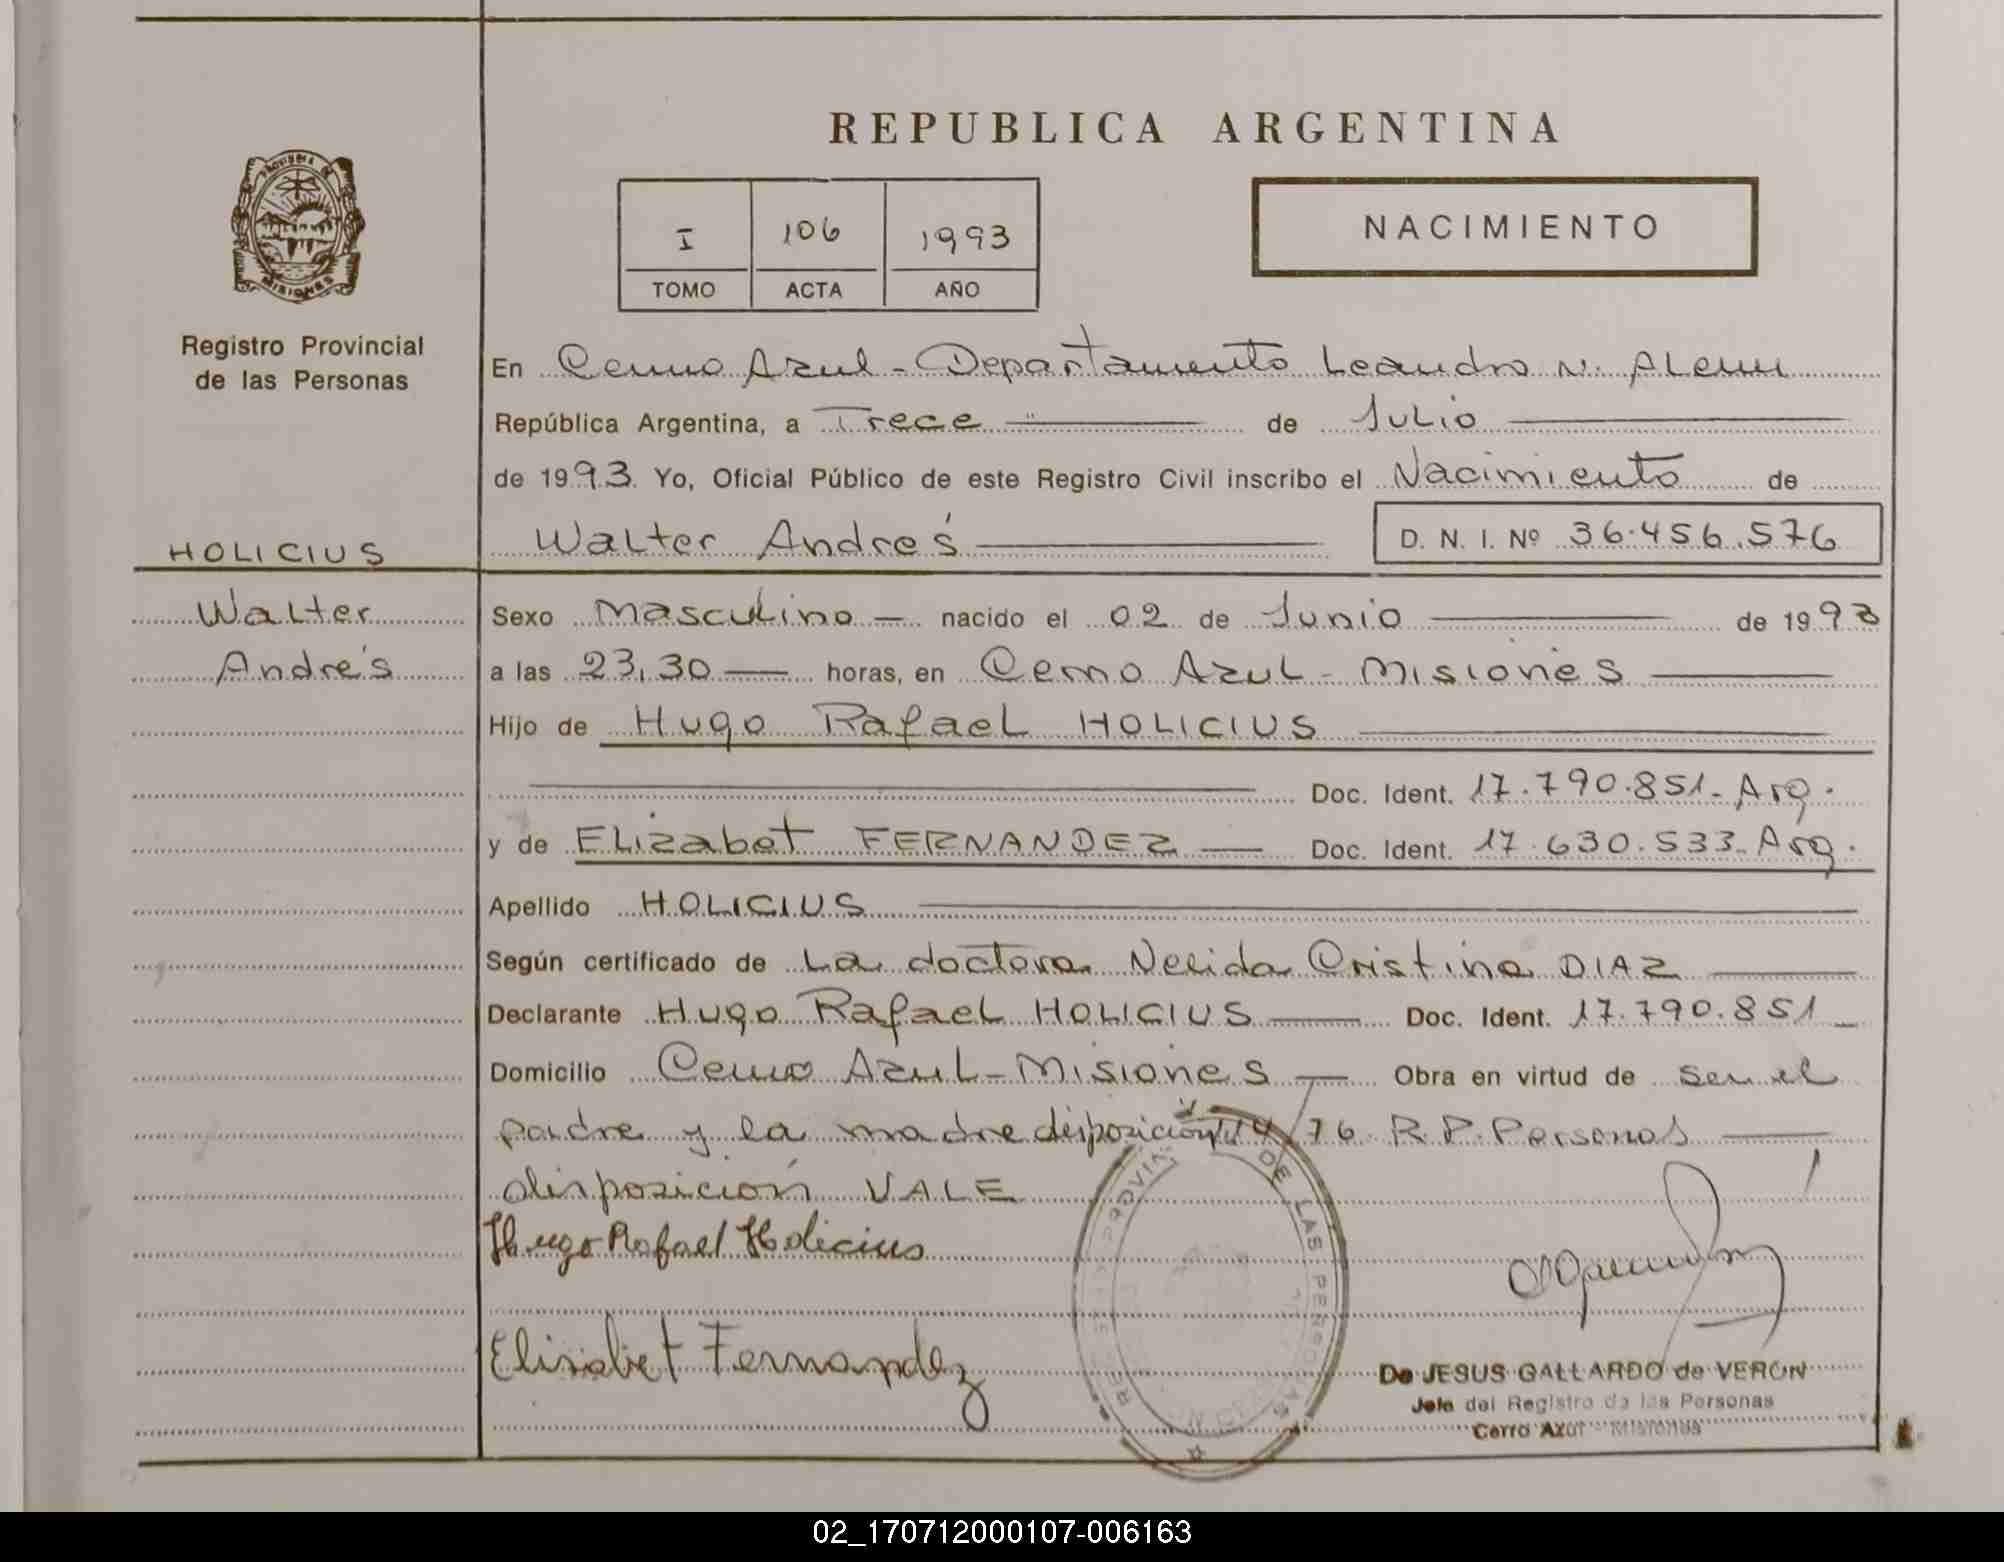 REPUBLICA ARGENTINA
PROVINCIA DE
MISIONES
Registro Provincial
de las Personas
I 106 1993
TOMO ACTA AÑO
NACIMIENTO
En Cerro Azul - Departamento Leandro N. ALem
República Argentina, a Trece de Julio
de 1993 Yo, Oficial Público de este Registro Civil inscribo el Nacimiento de
HOLICIUS
Walter Andrés D. N. I. Nº 36.456.576
Walter
Andrés
Sexo Masculino nacido el 02 de Junio de 1993
a las 23,30 horas, en Cerro Azul - Misiones
Hijo de Hugo Rafael HOLICIUS
Doc. Ident. 17.790.851- Arg.
y de Elizabet FERNANDEZ Doc. Ident. 17.630.533- Arg.
Apellido HOLICIUS
Según certificado de La doctora Nelida Cristina DIAZ
Declarante Hugo Rafael HOLICIUS Doc. Ident. 17.790.851
Domicilio Cerro Azul - Misiones Obra en virtud de ser el
padre y la madre disposición 14/76 R.P. Personas
disposición VALE
Hugo Rafael Holicius
Elisabet Fernandez
DE LAS PERSONAS
De JESUS GALLARDO de VERON
Jefe del Registro de las Personas
Cerro Azul - Misiones
02_170712000107-006163